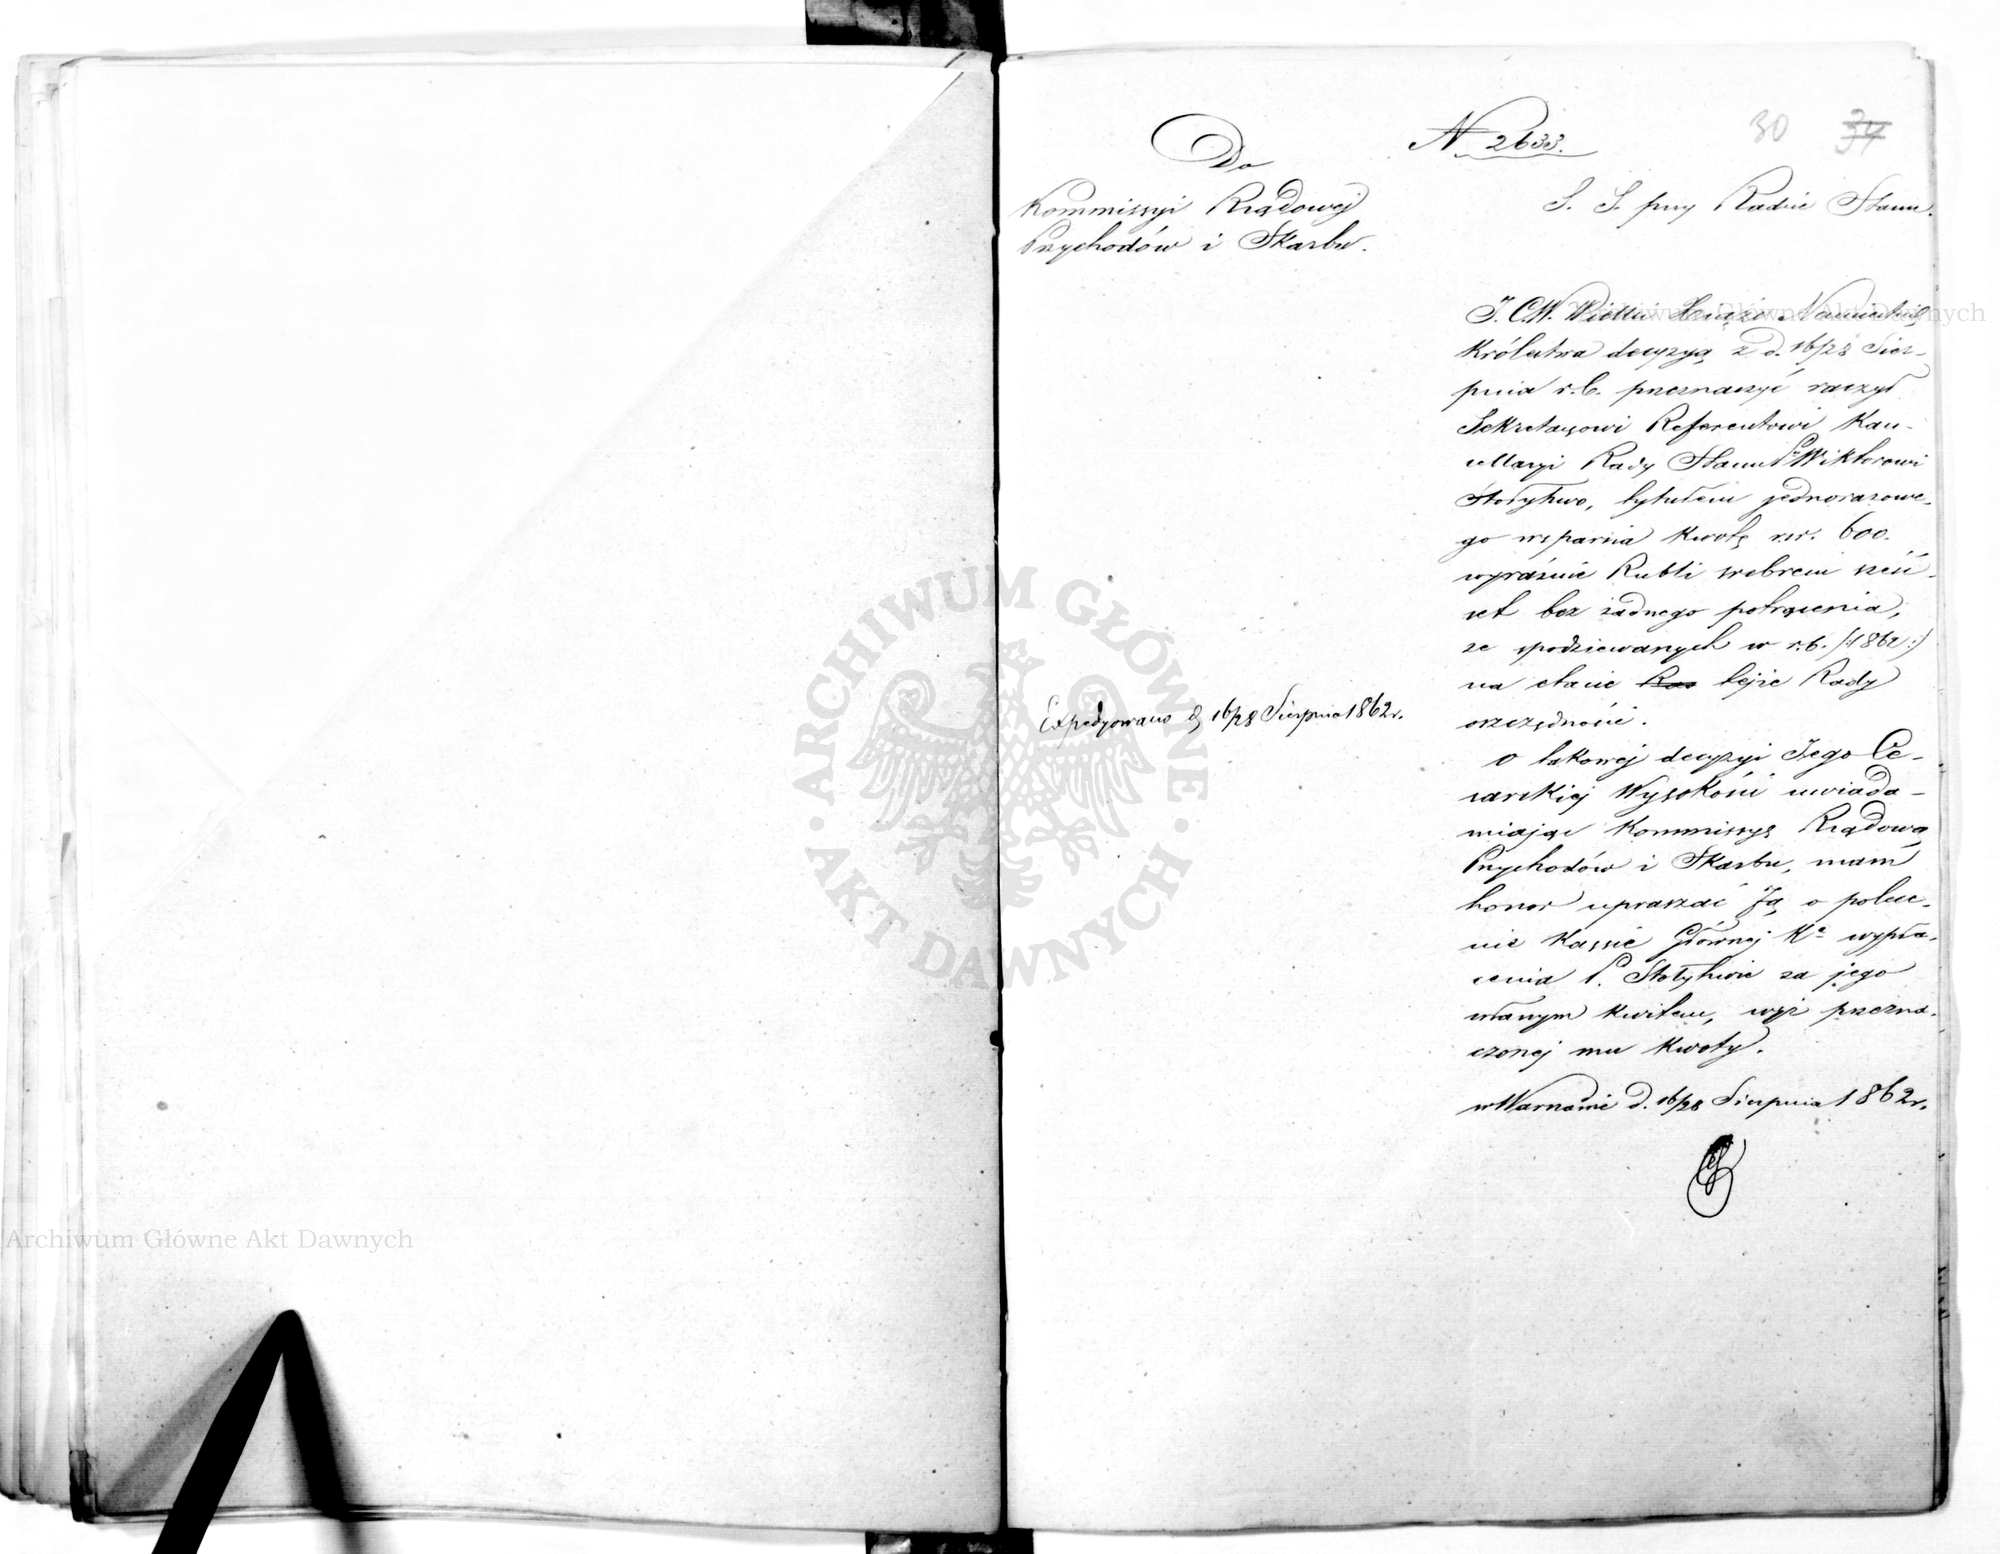 Do
Kommissyi Rządowej
Przychodów i Skarbu.
N 2633.
30 34
S. S. przy Radzie Stanu.
J. C. W. Wielki Xiąże Namiestnik
Królestwa decyzyą z d. 16/28 Sier-
pnia r. b. przeznaczyć raczył
Sekretarzowi Referentowi Kan-
cellaryi Rady Stanu P. Wiktorowi
Stołyhwo, tytułem jednorazowe-
go wsparcia kwotę rsr. 600.
wyraźnie Rubli srebrem sześć-
set bez żadnego potrącenia,
ze spodziewanych w r. b. /:1862:/
na etacie Ra tejże Rady
oszczędności.
O takowej decyzyi Jego Ce-
sarskiej Wysokości uwiada-
miając Kommissyę Rządową
Przychodów i Skarbu, mam
honor upraszać Ją o polece-
nie Kassie Głównej Kr. wypła-
cenia P. Stołyhwie za jego
własnym kwitem, wyż przezna-
czonej mu kwoty.
w Warszawie d. 16/28 Sierpnia 1862 r.
Expedyowano d. 16/28 Sierpnia 1862 r.
ARCHIWUM GŁÓWNE
AKT DAWNYCH
Archiwum Główne Akt Dawnych
Archiwum Główne Akt Dawnych